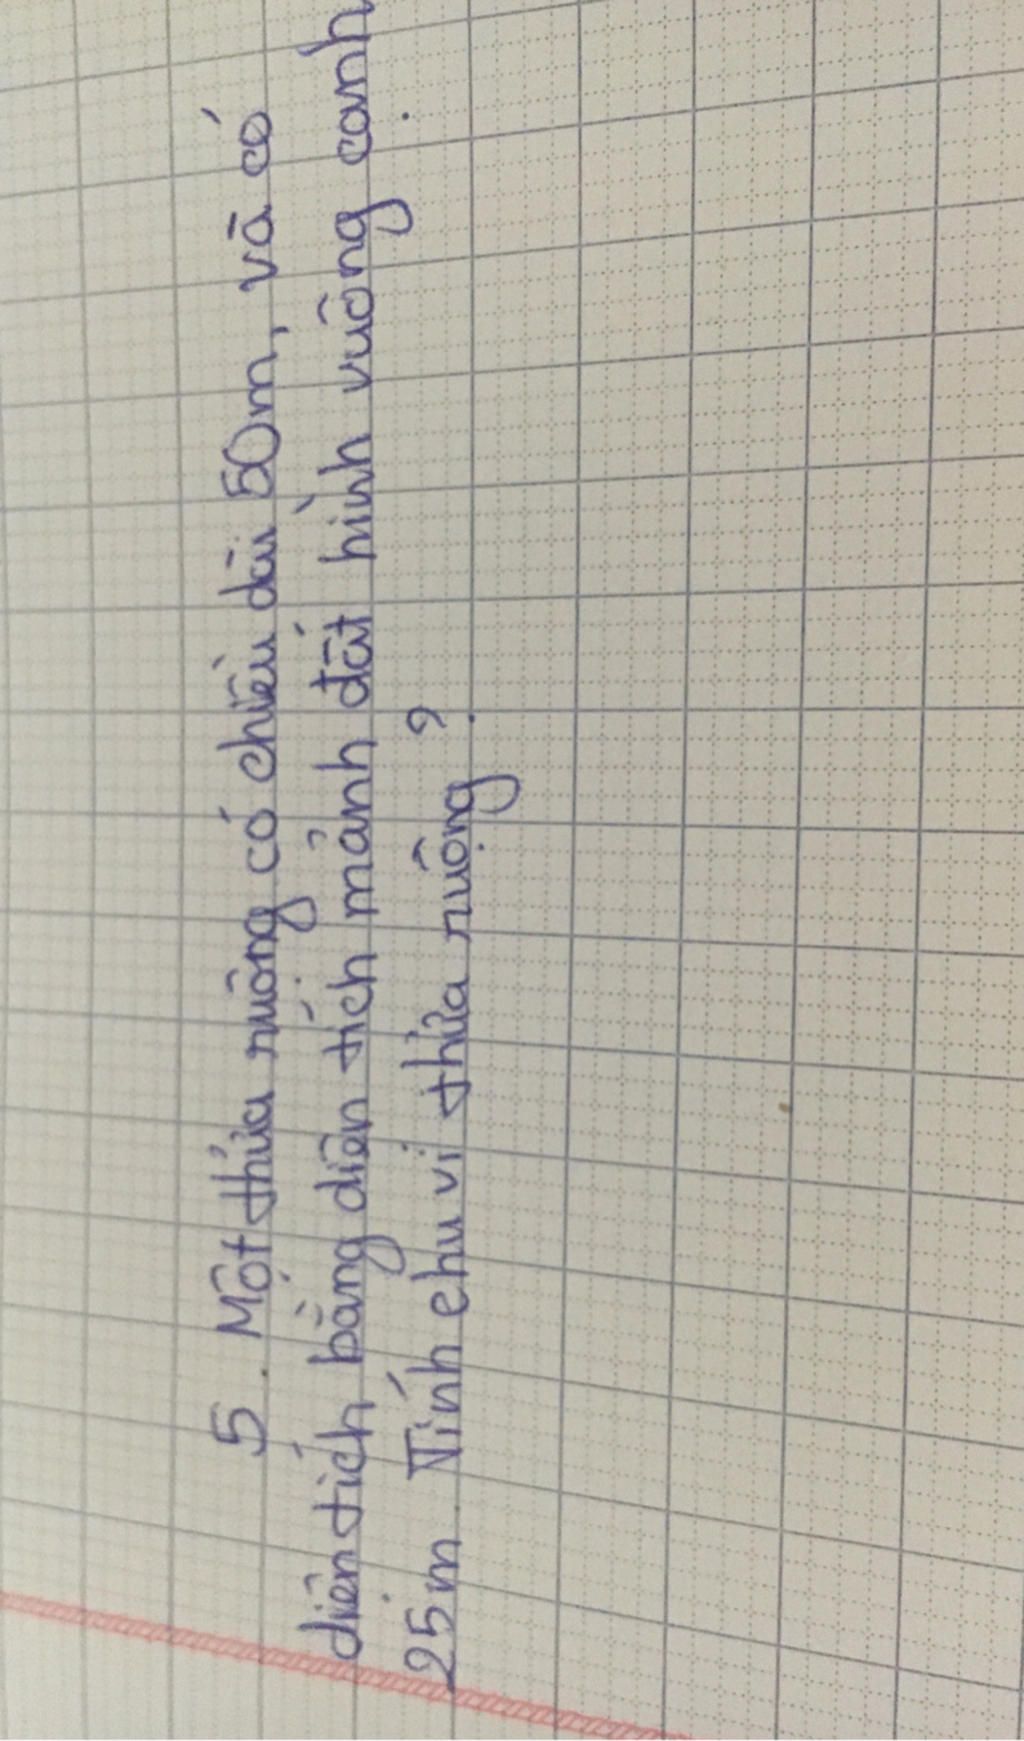 5. Một thửa ruộng có chiều dài 50m, và có
diện tích bằng diện tích mảnh đất hình vuông cạnh
25m. Tính chu vi thửa ruộng?